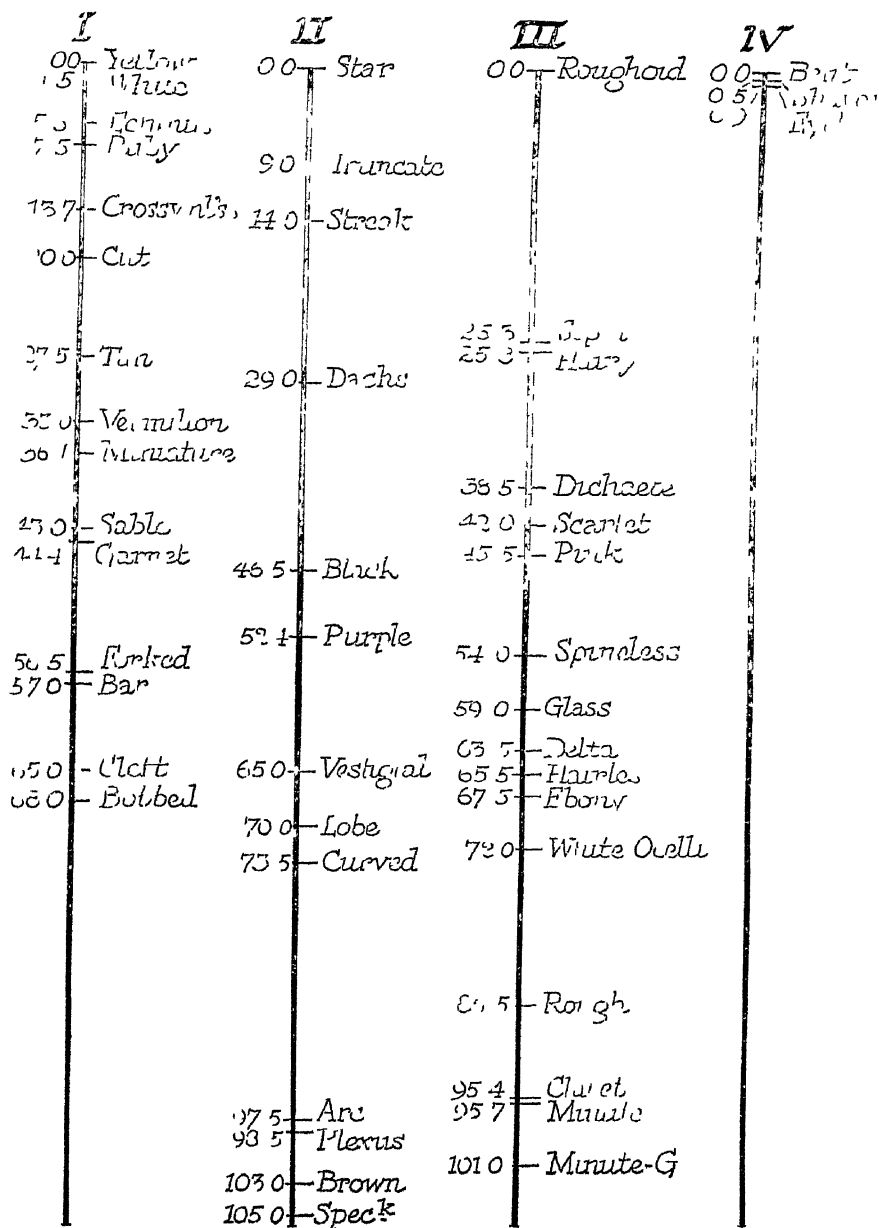 I
00 Yellow
15 White
Ruby
137 Crossv
00 Cut
27 5 Tan
Vermilion
36 1 Miniature
43 0 Sable
44 4 Garnet
56 5 Forked
57 0 Bar
65 0 Cleft
68 0 Bobbed
II
0 0 Star
9 0 Truncate
14 0 Streak
29 0 Dachs
46 5 Black
52 4 Purple
65 0 Vestigial
70 0 Lobe
73 5 Curved
97 5 Arc
98 5 Plexus
103 0 Brown
105 0 Speck
III
0 0 Roughoid
25 3
25 3 Hairy
38 5 Dichaete
42 0 Scarlet
45 5 Pink
54 0 Spineless
59 0 Glass
63 5 Delta
65 5 Hairles
67 5 Ebony
72 0 White Ocelli
5 Rough
95 4 Claret
95 7 Minute
101 0 Minute-G
IV
0 0 Bent
0 5